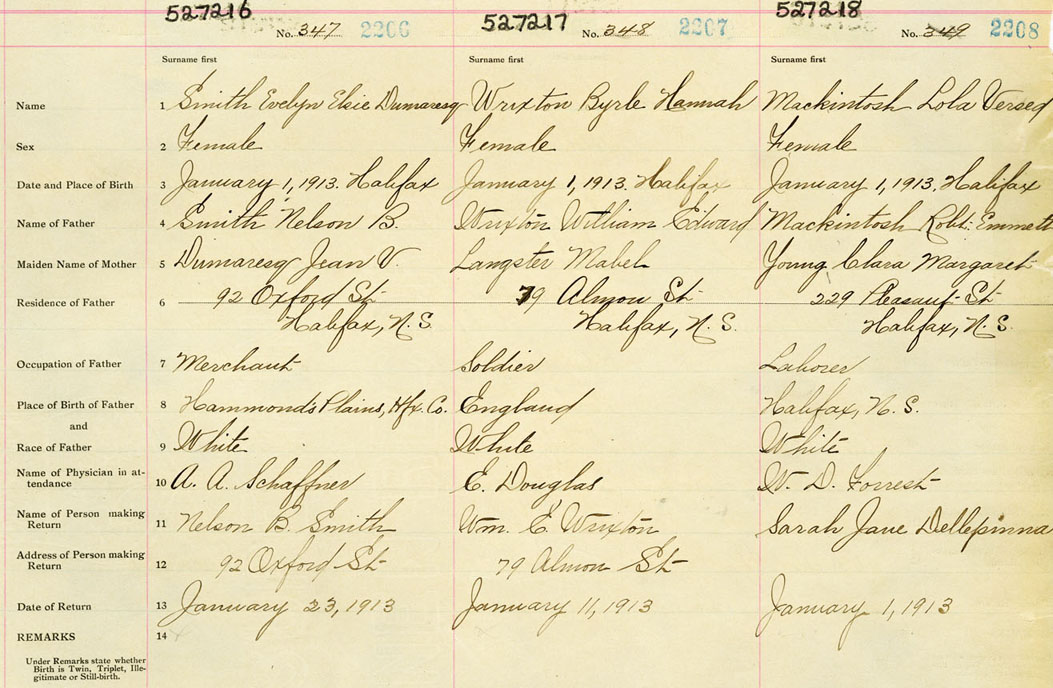 527216 527217 527218
No. 347 2206 No. 348 2207 No. 349 2208
Surname first Surname first Surname first
Name 1 Smith Evelyn Elsie Dumaresq Wrixton Byrle Hannah Mackintosh Lola Verseq
Sex 2 Female Female Female
Date and Place of Birth 3 January 1, 1913. Halifax January 1, 1913. Halifax January 1, 1913. Halifax
Name of Father 4 Smith Nelson B. Wrixton William Edward Mackintosh Robt. Emmett
Maiden Name of Mother 5 Dumaresq Jean V. Langster Mabel Young Clara Margaret
Residence of Father 6 92 Oxford St 79 Almon St 229 Pleasant St
Halifax, N.S. Halifax, N.S. Halifax, N.S.
Occupation of Father 7 Merchant Soldier Laborer
Place of Birth of Father 8 Hammonds Plains, Hfx. Co. England Halifax, N.S.
and
Race of Father 9 White White White
Name of Physician in at-
tendance 10 A. A. Schaffner E. Douglas W. D. Forrest
Name of Person making
Return 11 Nelson B. Smith Wm. E. Wrixton Sarah Jane Dellepinna
Address of Person making
Return 12 92 Oxford St 79 Almon St
Date of Return 13 January 23, 1913 January 11, 1913 January 1, 1913
REMARKS 14
Under Remarks state whether
Birth is Twin, Triplet, Ille-
gitimate or Still-birth.